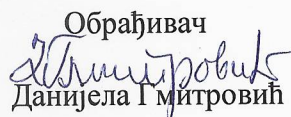 Обрађивач
Данијела Гмитровић